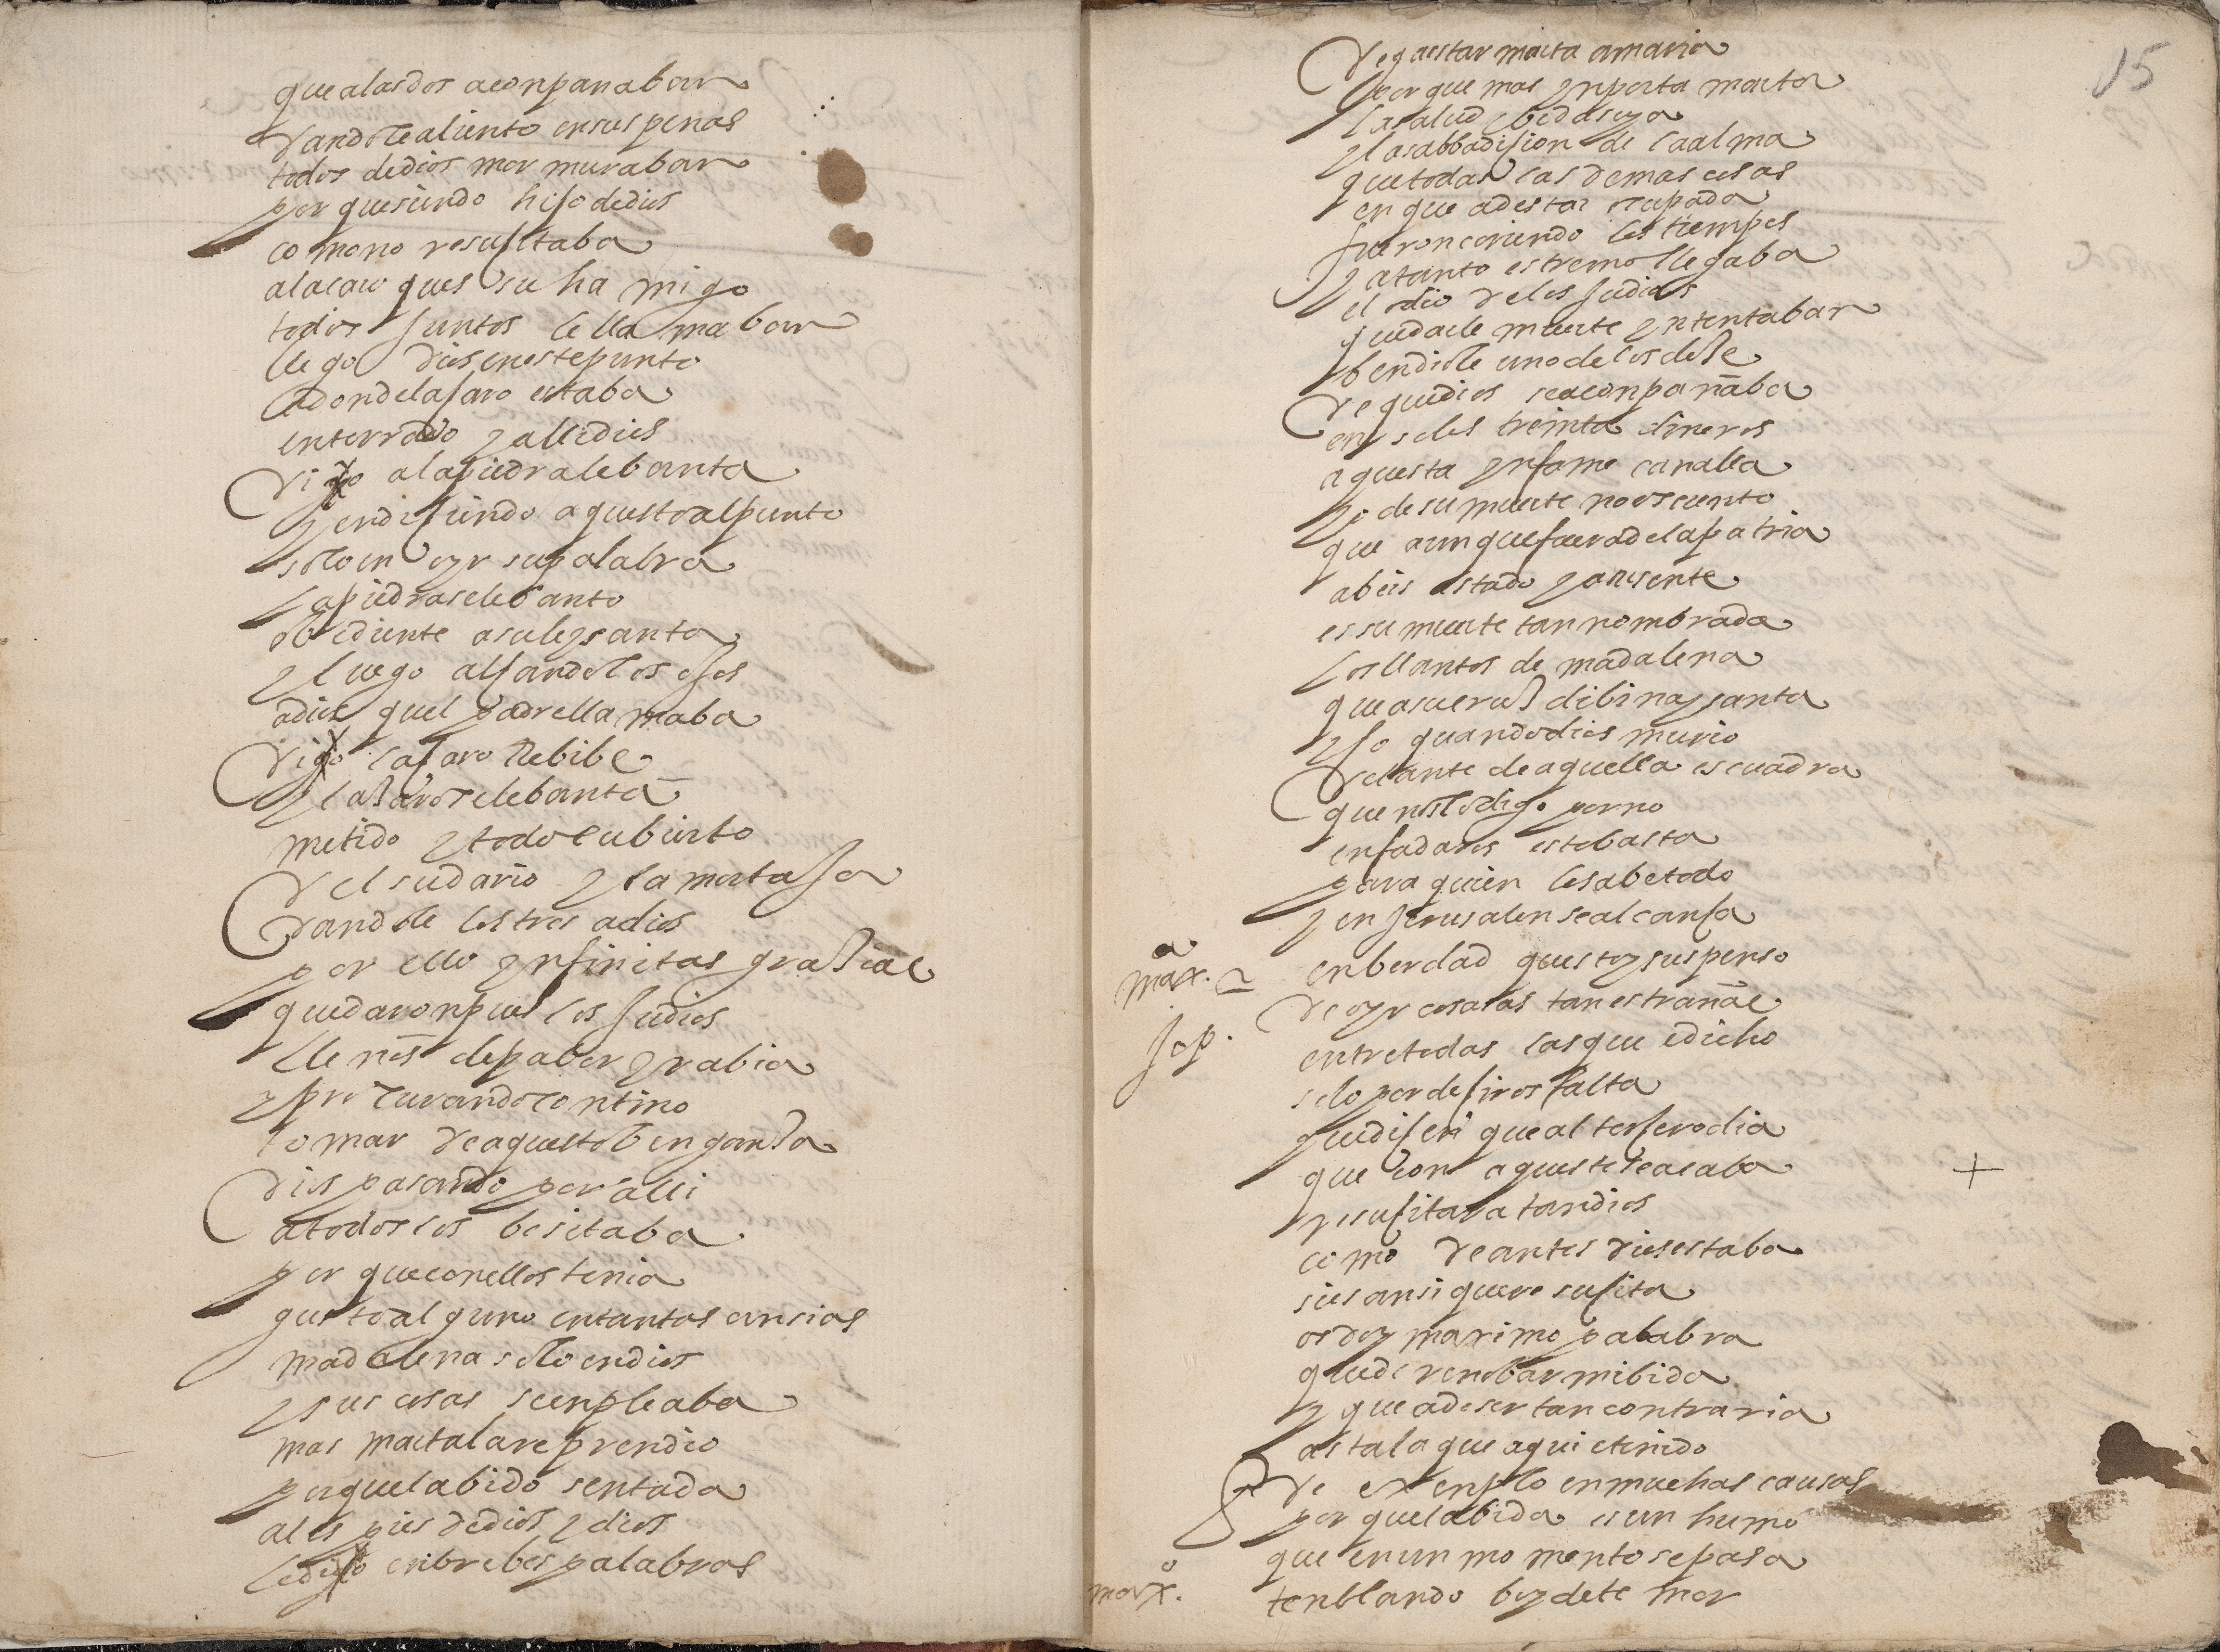 que a las dos aconpanaban
dandole aliento en sus penas
todos de dios mormuraban
por que siendo hijo de dios
como no resusitaba
a laçaro ques su hamigo
todos juntos le llamaban
llego dios en este punto
adonde laçaro estaba
enterrado y alli dios
dijo a la piedra lebanta
y en diçiendo aquesto al punto
solo en oyr su palabra
la piedra se lebanto
obediente a su ley santa
y luego alçando los ojos
a dios quel padre llamaba
dijo laçaro rebibe
y laçaro se lebanta
metido y todo cubierto
del sudario y la mortaja
dandole los tres a dios
por ello ynfinitas graçias
quedaron pues los judios
llenos de pabor y rabia
y procurando contino
tomar de aquesto bengança
dios pasando por alli
a todos los besitaba
por que con ellos tenia
gusto alguno en tantas ansias
madalena solo en dios
y sus cosas se enpleaba
mas marta la reprendio
por que la bido sentada
a los pies de dios y dios
le dijo en brebes palabras
15
de questar marta a maria
por que mas ynporta marta
la salud y bida suya
y la sabbadision de la alma
que todas las demas cosas
en que a de star ocupada
fueron coriendo los tiempos
y a tanto estremo llegaba
el odio de los judios
que darle muerte yntentaban
bendiole uno de los doçe
de que dios se aconpañaba
en solos treinta dineros
a questa ynfame canalla
yo de su muerte no os cuento
que aunque fuera de la patria
abeis estado y ausente
es su muerte tan nombrada
los llantos de madalena
que asu cruz dibina y santa
yço quando dios murio
delante de aquella escuadra
que no lo digo por no
enfadaros esto basta
para quien lo sabe todo
y en jerusalen se alcança
max.º en berdad questoy suspenso
de oyr cosas tan estrañas
jop. entre todas las que e dicho
solo por deçiros falta
que diçen que al terçero dia
que con aqueste se acaba +
resuçitara tan dios
como de antes dios estaba
si es ansi que resuçita
os doy maximo palabra
que de renobar mi bida
y que a de ser tan contraria
asta la que aqui e tenido
de exenplo en muchas causas
por que la bida es un humo
que en un momento se pasa
max.º tenblando boy de temor